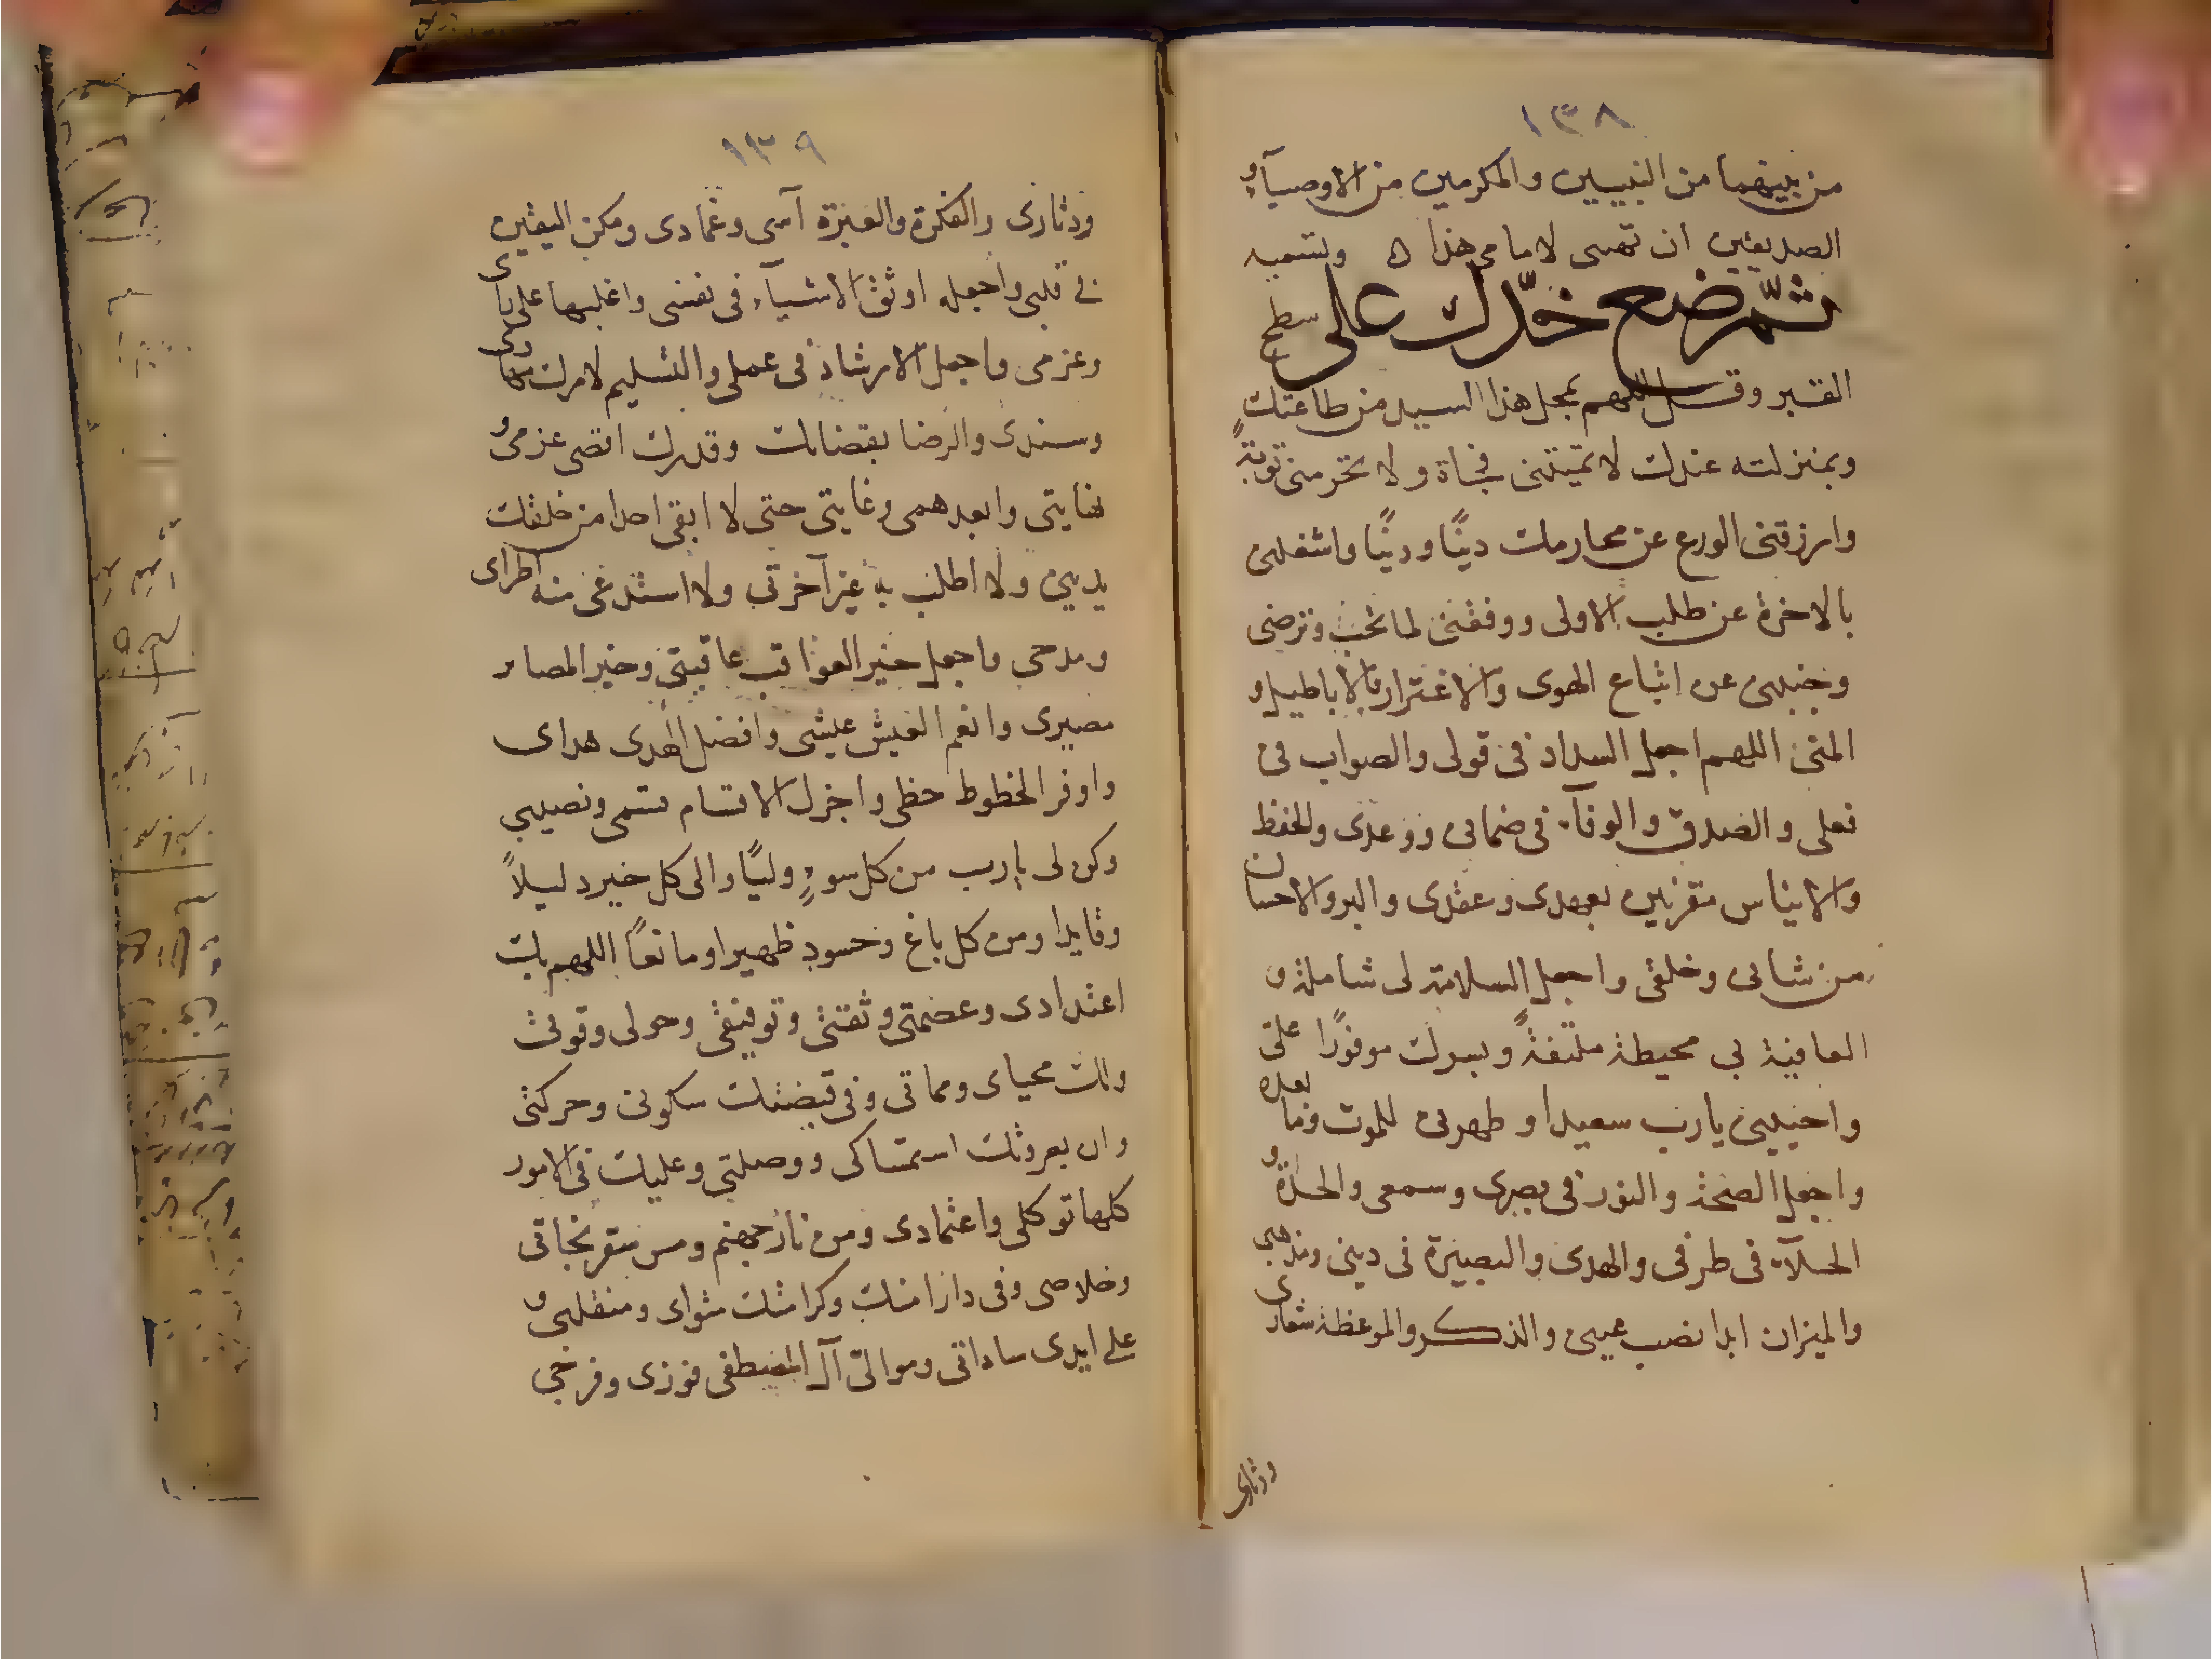 ١٣٨
من بينهما من النبيين والمكرمين من الاوصيآء و
الصديقين ان تهدى لامامى هذا ه وتسميه
ثمّ ضع خدّك على سطح
القبر وقل اللهم بمحل هذا السيد من طاعتك
وبمنزلته عندك لا تميتنى فجاة ولا تحرمنى توبةً
وارزقنى الورع عن محارمك دينًا ودنيًا واشغلنى
بالاخرة عن طلب الاولى ووفقنى لما تحب وترضى
وجنبنى عن اتباع الهوى والاغترار بالاباطيل و
المنى اللهم اجعل السداد فى قولى والصواب فى
فعلى والصدق والوفآء فى ضمانى ووعدى والحفظ
والايناس مقرنين بعهدى وعقدى والبر والاحسان
من شانى وخلقى واجعل السلامة لى شاملة و
العافية بى محيطة ملتفةً وبسرك موفورًا على
واحيينى يارب سعيدا وطهرنى للموت وما بعده
واجعل الصحة والنور فى بصرى وسمعى والجدة و
الجلآء فى طرفى والهدى والبصيرة فى دينى ومذهبى
والميزان ابدا نصب عينى والذكر والموعظة شعارى
ودثارى
١٣٩
ودثارى والفكرة والعبرة آسى وعمادى ومكن اليقين
فى قلبى واجعله اوثق الاشيآء فى نفسى واغلبها على يا
وعزمى واجعل الارشاد فى عملى والتسليم لامرك مهادى
وسندى والرضا بقضائك وقدرك اقصى عزمى و
نهايتى وابعد همى وغايتى حتى لا ابقى احدا من خلقك
يدينى ولا اطلب به غير آخرتى ولا استدعى منه اطراى
ومدحى واجعل خير العواقب عاقبتى وخير المصاير
مصيرى وانعم العيش عيشى وافضل الهدى هداى
واوفر الحظوط حظى واجزل الاقسام قسمى ونصيبى
وكن لى يارب من كل سوءٍ وليًا والى كل خير دليلاً
وقايدا ومن كل باغ وحسود ظهيرا ومانعًا اللهم بك
اعتدادى وعصمتى وثقتى وتوفيقى وحولى وقوتى
ولك محياى ومماتى وفى قبضتك سكونى وحركتى
وان بعروتك استمساكى ووصلتى وعليك فى الامور
كلها توكلى واعتمادى ومن نار جهنم ومس سقر نجاتى
وخلاصى وفى دار امنك وكرامتك مثواى ومنقلبى و
على ايدى ساداتى وموالى آل المصطفى فوزى وفرجى